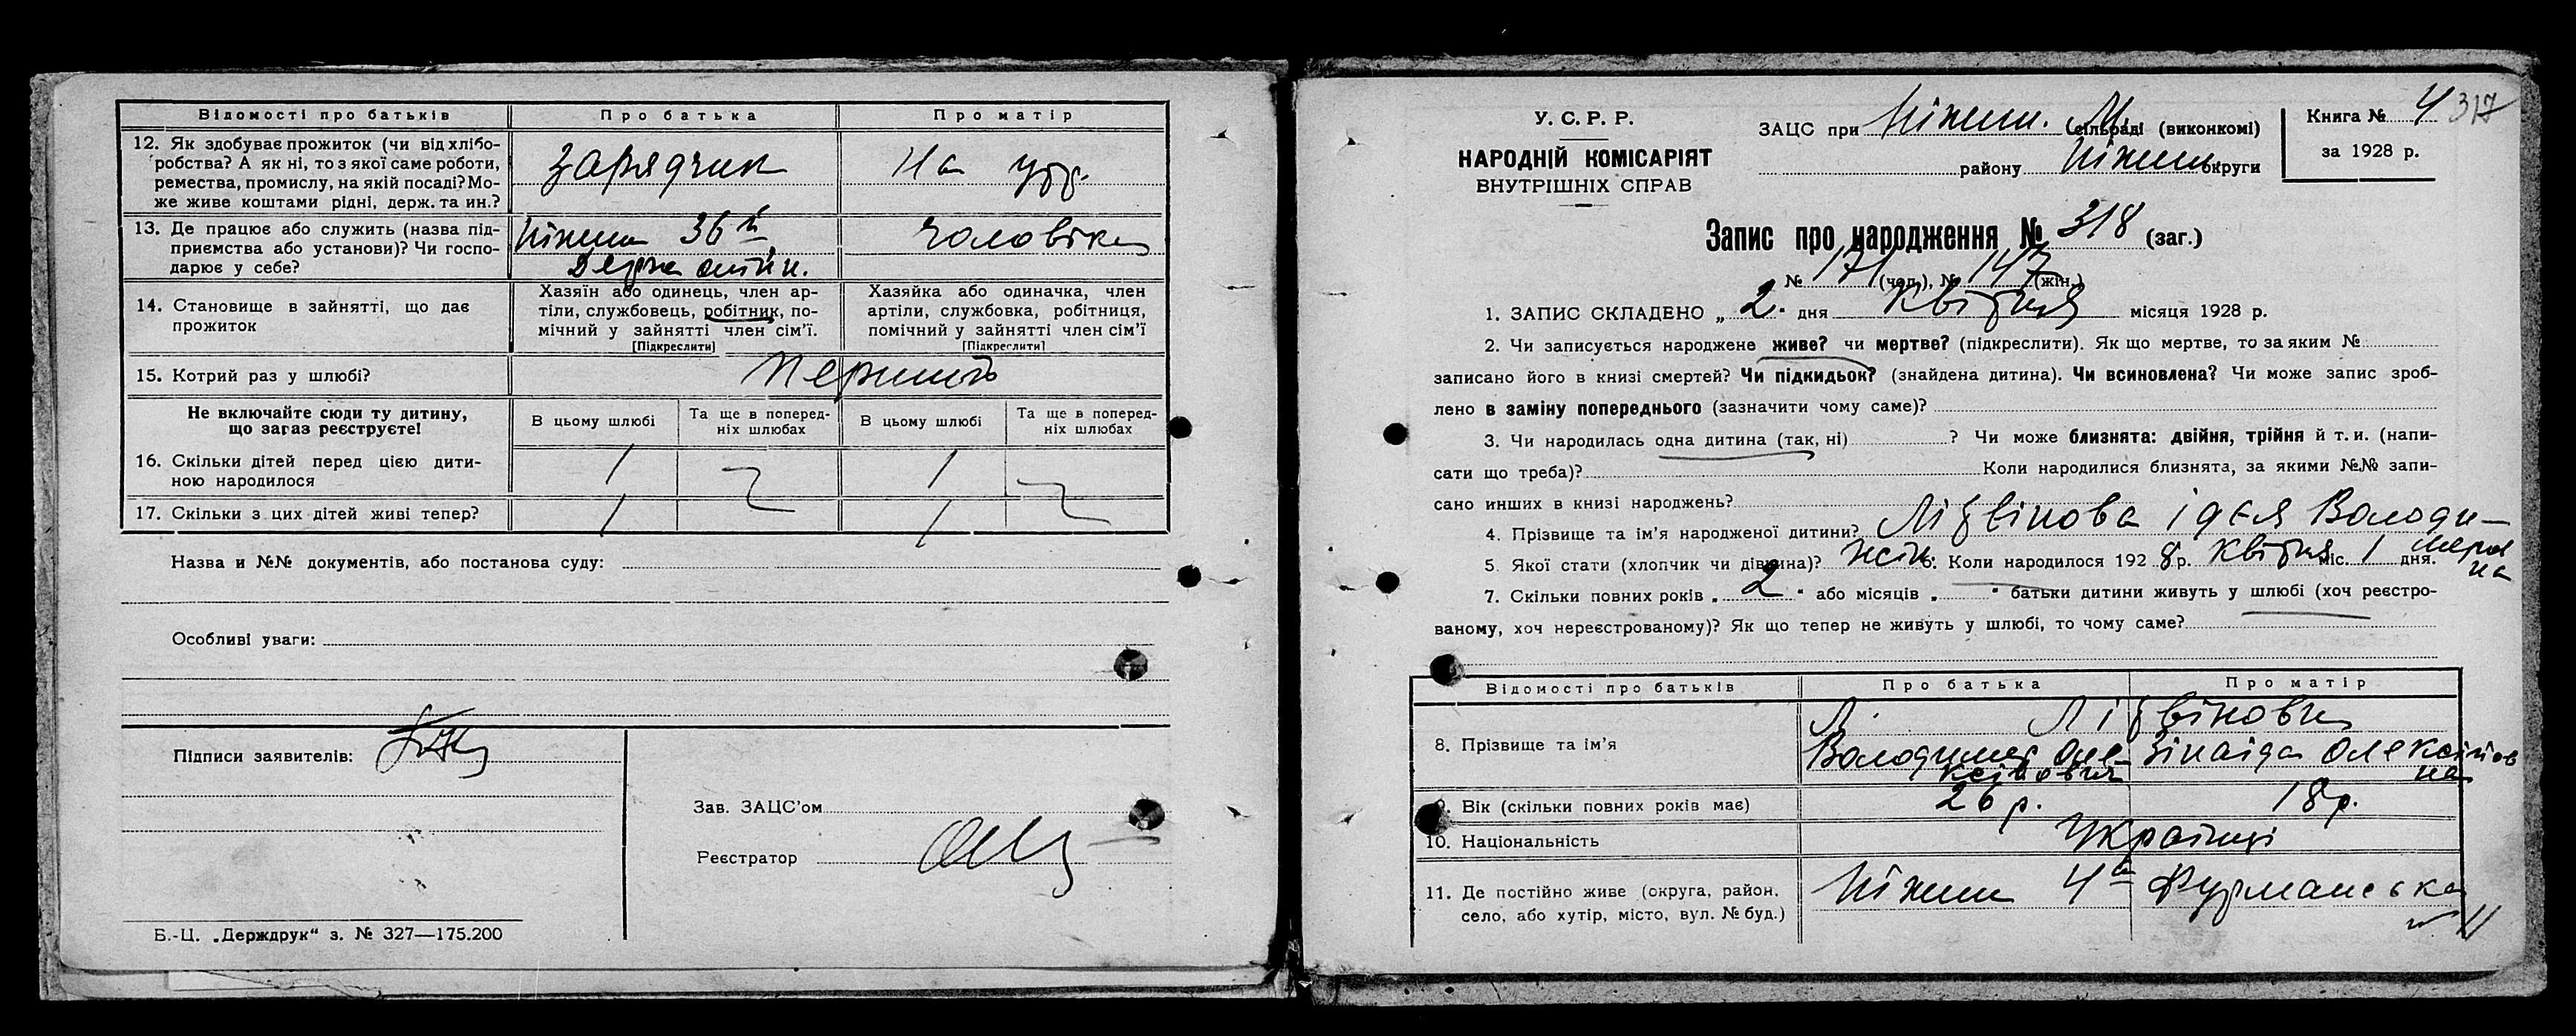 Відомості про батьків Про батька Про матір
12. Як здобуває прожиток (чи від хлібо-
робства? А як ні, то з якої саме роботи,
ремества, промислу, на якій посаді? Мо-
же живе коштами рідні, держ. та ин.?
зарядчик На утр.
13. Де працює або служить (назва під-
приємства або установи)? Чи госпо-
дарює у себе?
Ніжин 36й чоловіка
14. Становище в зайнятті, що дає
прожиток
Хазяїн або одинець, член ар-
тілі, службовець, робітник, по-
мічний у зайнятті член сім'ї.
[Підкреслити]
Хазяйка або одиначка, член
артілі, службовка, робітниця,
помічний у зайнятті член сім'ї
[Підкреслити]
15. Котрий раз у шлюбі? перший
Не включайте сюди ту дитину,
що зараз реєструєте!
В цьому шлюбі
Та ще в поперед-
ніх шлюбах
В цьому шлюбі
Та ще в поперед-
ніх шлюбах
16. Скільки дітей перед цією дити-
ною народилося
1 1
17. Скільки з цих дітей живі тепер? 1 1
Назва и №№ документів, або постанова суду:
Особливі уваги:
Підписи заявителів:
Зав. ЗАЦС'ом
Реєстратор
Б.-Ц. „Держдрук“ з. № 327—175.200
У. С. Р. Р.
НАРОДНІЙ КОМІСАРІЯТ
ВНУТРІШНІХ СПРАВ
ЗАЦС при Ніжин. М. сільраді (виконкомі)
району Ніжин. округи
Книга № 4 317
за 1928 р.
Запис про народження № 318 (заг.)
№ 171 (чол.), № 147 (жін.)
1. ЗАПИС СКЛАДЕНО „ 2 “ дня Квітня місяця 1928 р.
2. Чи записується народжене живе? чи мертве? (підкреслити). Як що мертве, то за яким №
записано його в книзі смертей? Чи підкидьок? (знайдена дитина). Чи всиновлена? Чи може запис зроб-
лено в заміну попереднього (зазначити чому саме)?
3. Чи народилась одна дитина (так, ні) ? Чи може близнята: двійня, трійня й т. и. (напи-
сати що треба)? Коли народилися близнята, за якими №№ запи-
сано инших в книзі народжень?
4. Прізвище та ім'я народженої дитини? Літвінова Ідея Володи-
мировна
5. Якої стати (хлопчик чи дівчина)? жін. 6. Коли народилося 1928 р. Квітня міс. 1 дня.
7. Скільки повних років „ 2 “ або місяців „ “ батьки дитини живуть у шлюбі (хоч реєстро-
ваному, хоч нереєстрованому)? Як що тепер не живуть у шлюбі, то чому саме?
Відомості про батьків Про батька Про матір
8. Прізвище та ім'я
Літвінови
Володимир Оле-
ксійович
Зінаїда Олексіївна
9. Вік (скільки повних років має) 26 р. 18 р.
10. Національність Українці
11. Де постійно живе (округа, район,
село, або хутір, місто, вул. № буд.)
Ніжин 4а Фурманська
11